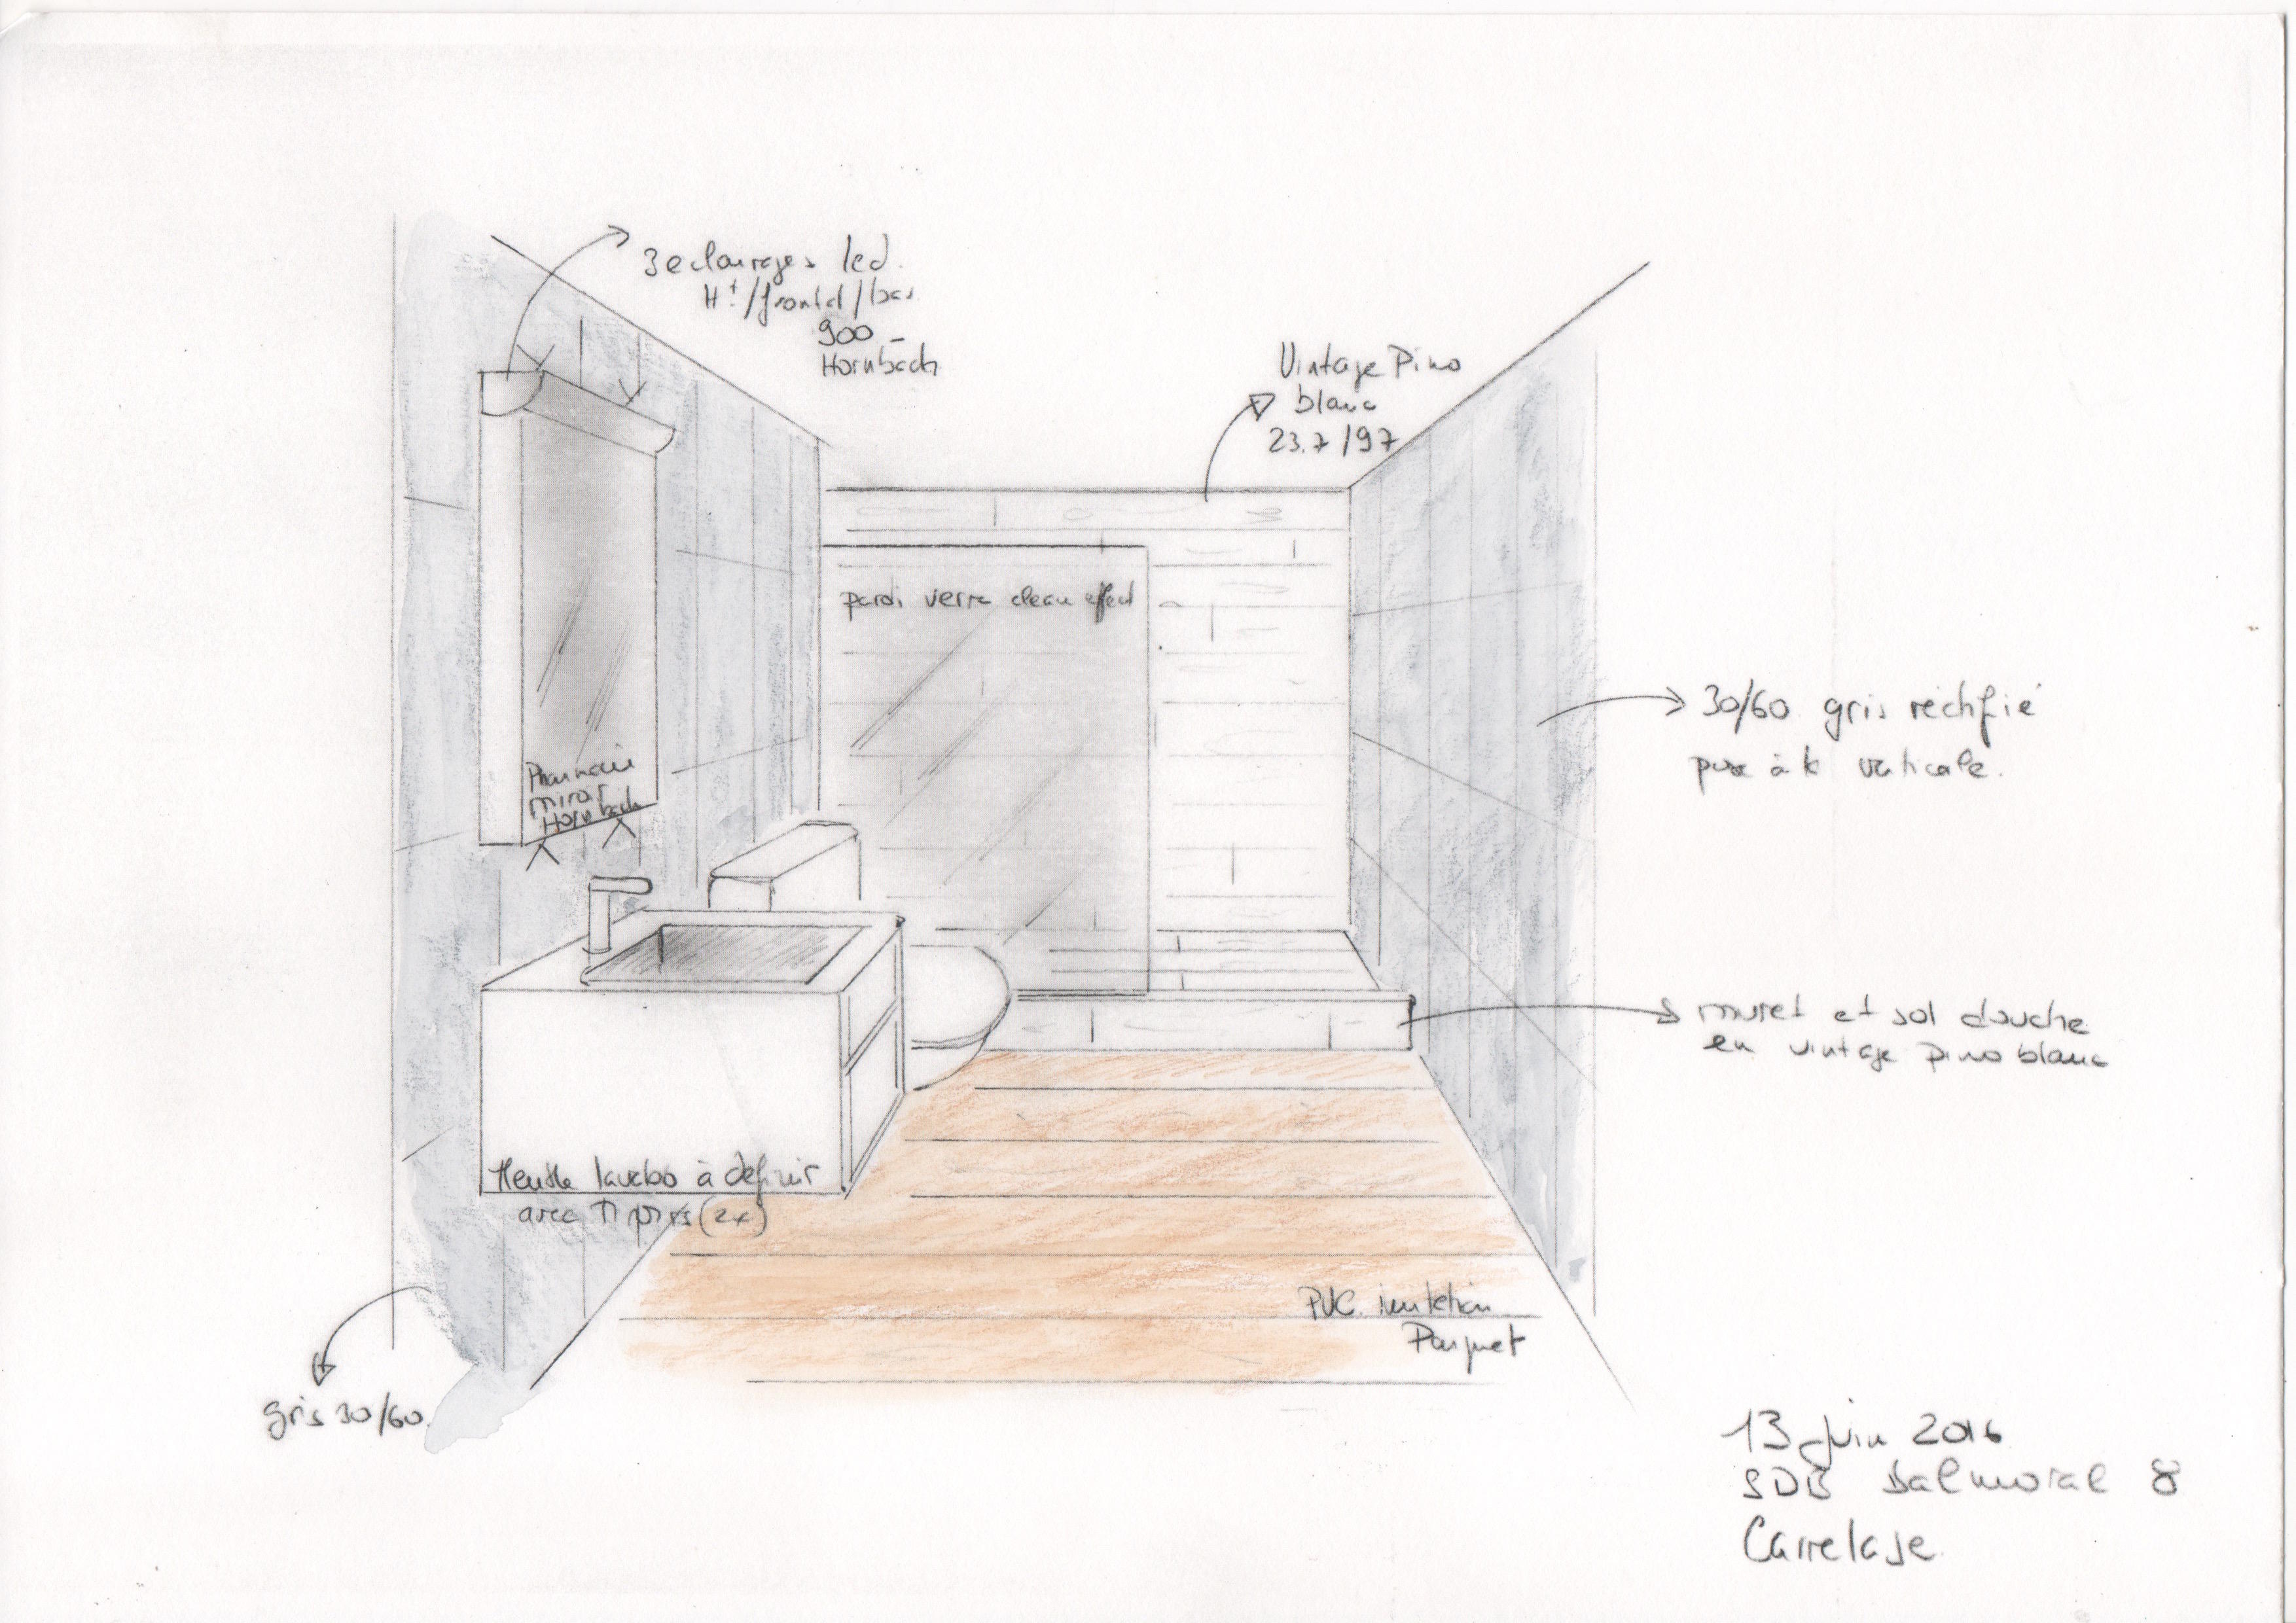 3 eclairages led.
Ht/frontal/bas
900.-
Hornbach
Vintage Pino
blanc
23.7/97
paroi verre clean effect
30/60 gris rectifié
pose à la verticale.
Pharmacie
miroir
Hornbach
muret et sol douche
en vintage pino blanc
Meuble lavabo à définir
avec Tiroirs (2x)
PVC imitation
Parquet
gris 30/60.
13 Juin 2016
SDB Balmoral 8
Carrelage